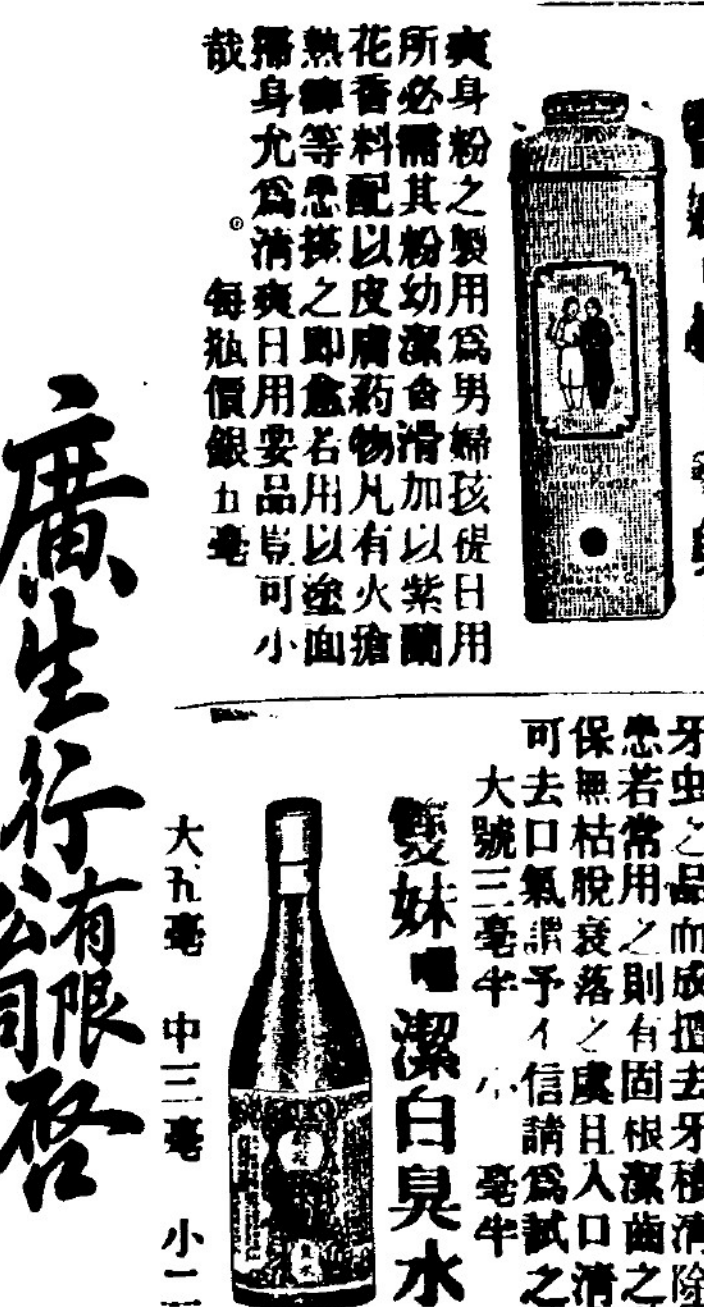 爽身粉之製用爲男婦孩提日用
所必需其粉幼潔香滑加以紫蘭
花香料配以皮膚药物凡有火瘡
熱癬等患搽之即愈若用以塗面
掃身允爲清爽日用要品豈可小
哉
每瓶價銀五毫
VIOLET
POWDER
牙虫之品而成擅去牙積清除
患若常用之則有固根潔齒之
保無枯脫衰落之虞且入口清
可去口氣請予信請爲試之
大號三毫半 小 毫半
雙妹嘜 潔白臭水
大五毫 中三毫 小二
廣生行有限公司啓